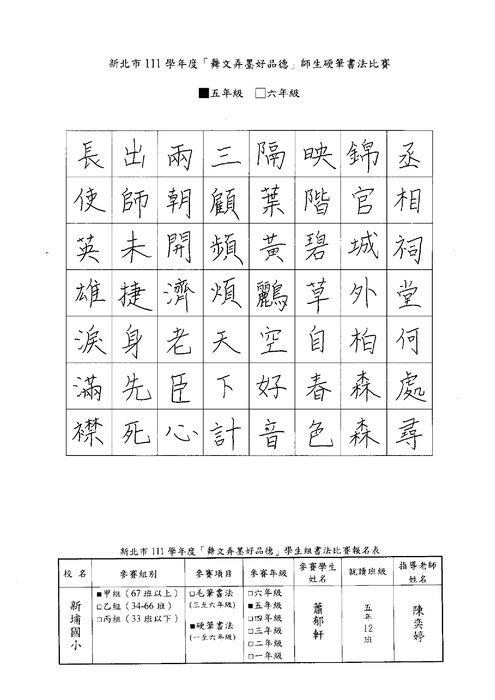 新北市 111 學年度「舞文弄墨好品德」師生硬筆書法比賽
■五年級 □六年級
丞相祠堂何處尋
錦官城外柏森森
映階碧草自春色
隔葉黃鸝空好音
三顧頻煩天下計
兩朝開濟老臣心
出師未捷身先死
長使英雄淚滿襟
新北市 111 學年度「舞文弄墨好品德」學生組書法比賽報名表
校 名
參賽組別
參賽項目
參賽年級
參賽學生
姓名
就讀班級
指導老師
姓名
新埔國小
■甲組（67 班以上）
□乙組（34-66 班）
□丙組（33 班以下）
□毛筆書法
（三至六年級）
■硬筆書法
（一至六年級）
□六年級
■五年級
□四年級
□三年級
□二年級
□一年級
蕭郁軒
五年12班
陳奕婷